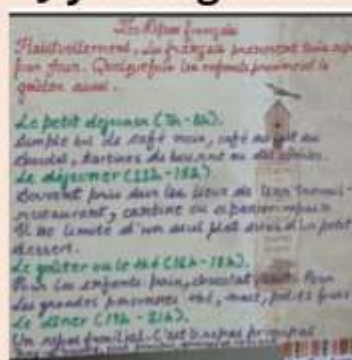 Les Repas français
Habituellement, les français prennent trois repas
par jour. Quelquefois les enfants prennent le
goûter aussi.
Le petit déjeuner (7h-8h).
Simple bol de café noir, café au lait ou
tartines de beurre ou des
Le déjeuner (12h-13h)
Souvent pris dans les lieux de leur travail-
restaurant, cantine ou
Il se limite d'un seul plat suivi d'un petit
dessert.
Le goûter ou le thé (16h-18h).
Pour les enfants pain, chocolat, Pour
les grandes personnes thé, petits fours
Le dîner (19h-21h).
Un repas familial. C'est le repas principal